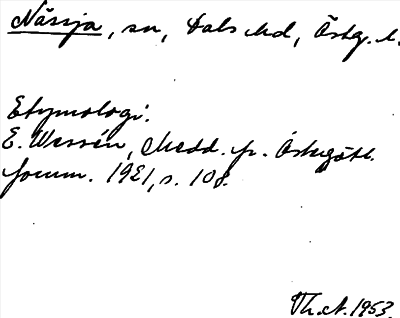 Nässja, sn, Dals hd, Östg. l.
Etymologi.
E. Wessén, Medd. fr. Östergötl.
fornm. 1921, s. 108.
Th. A. 1953.